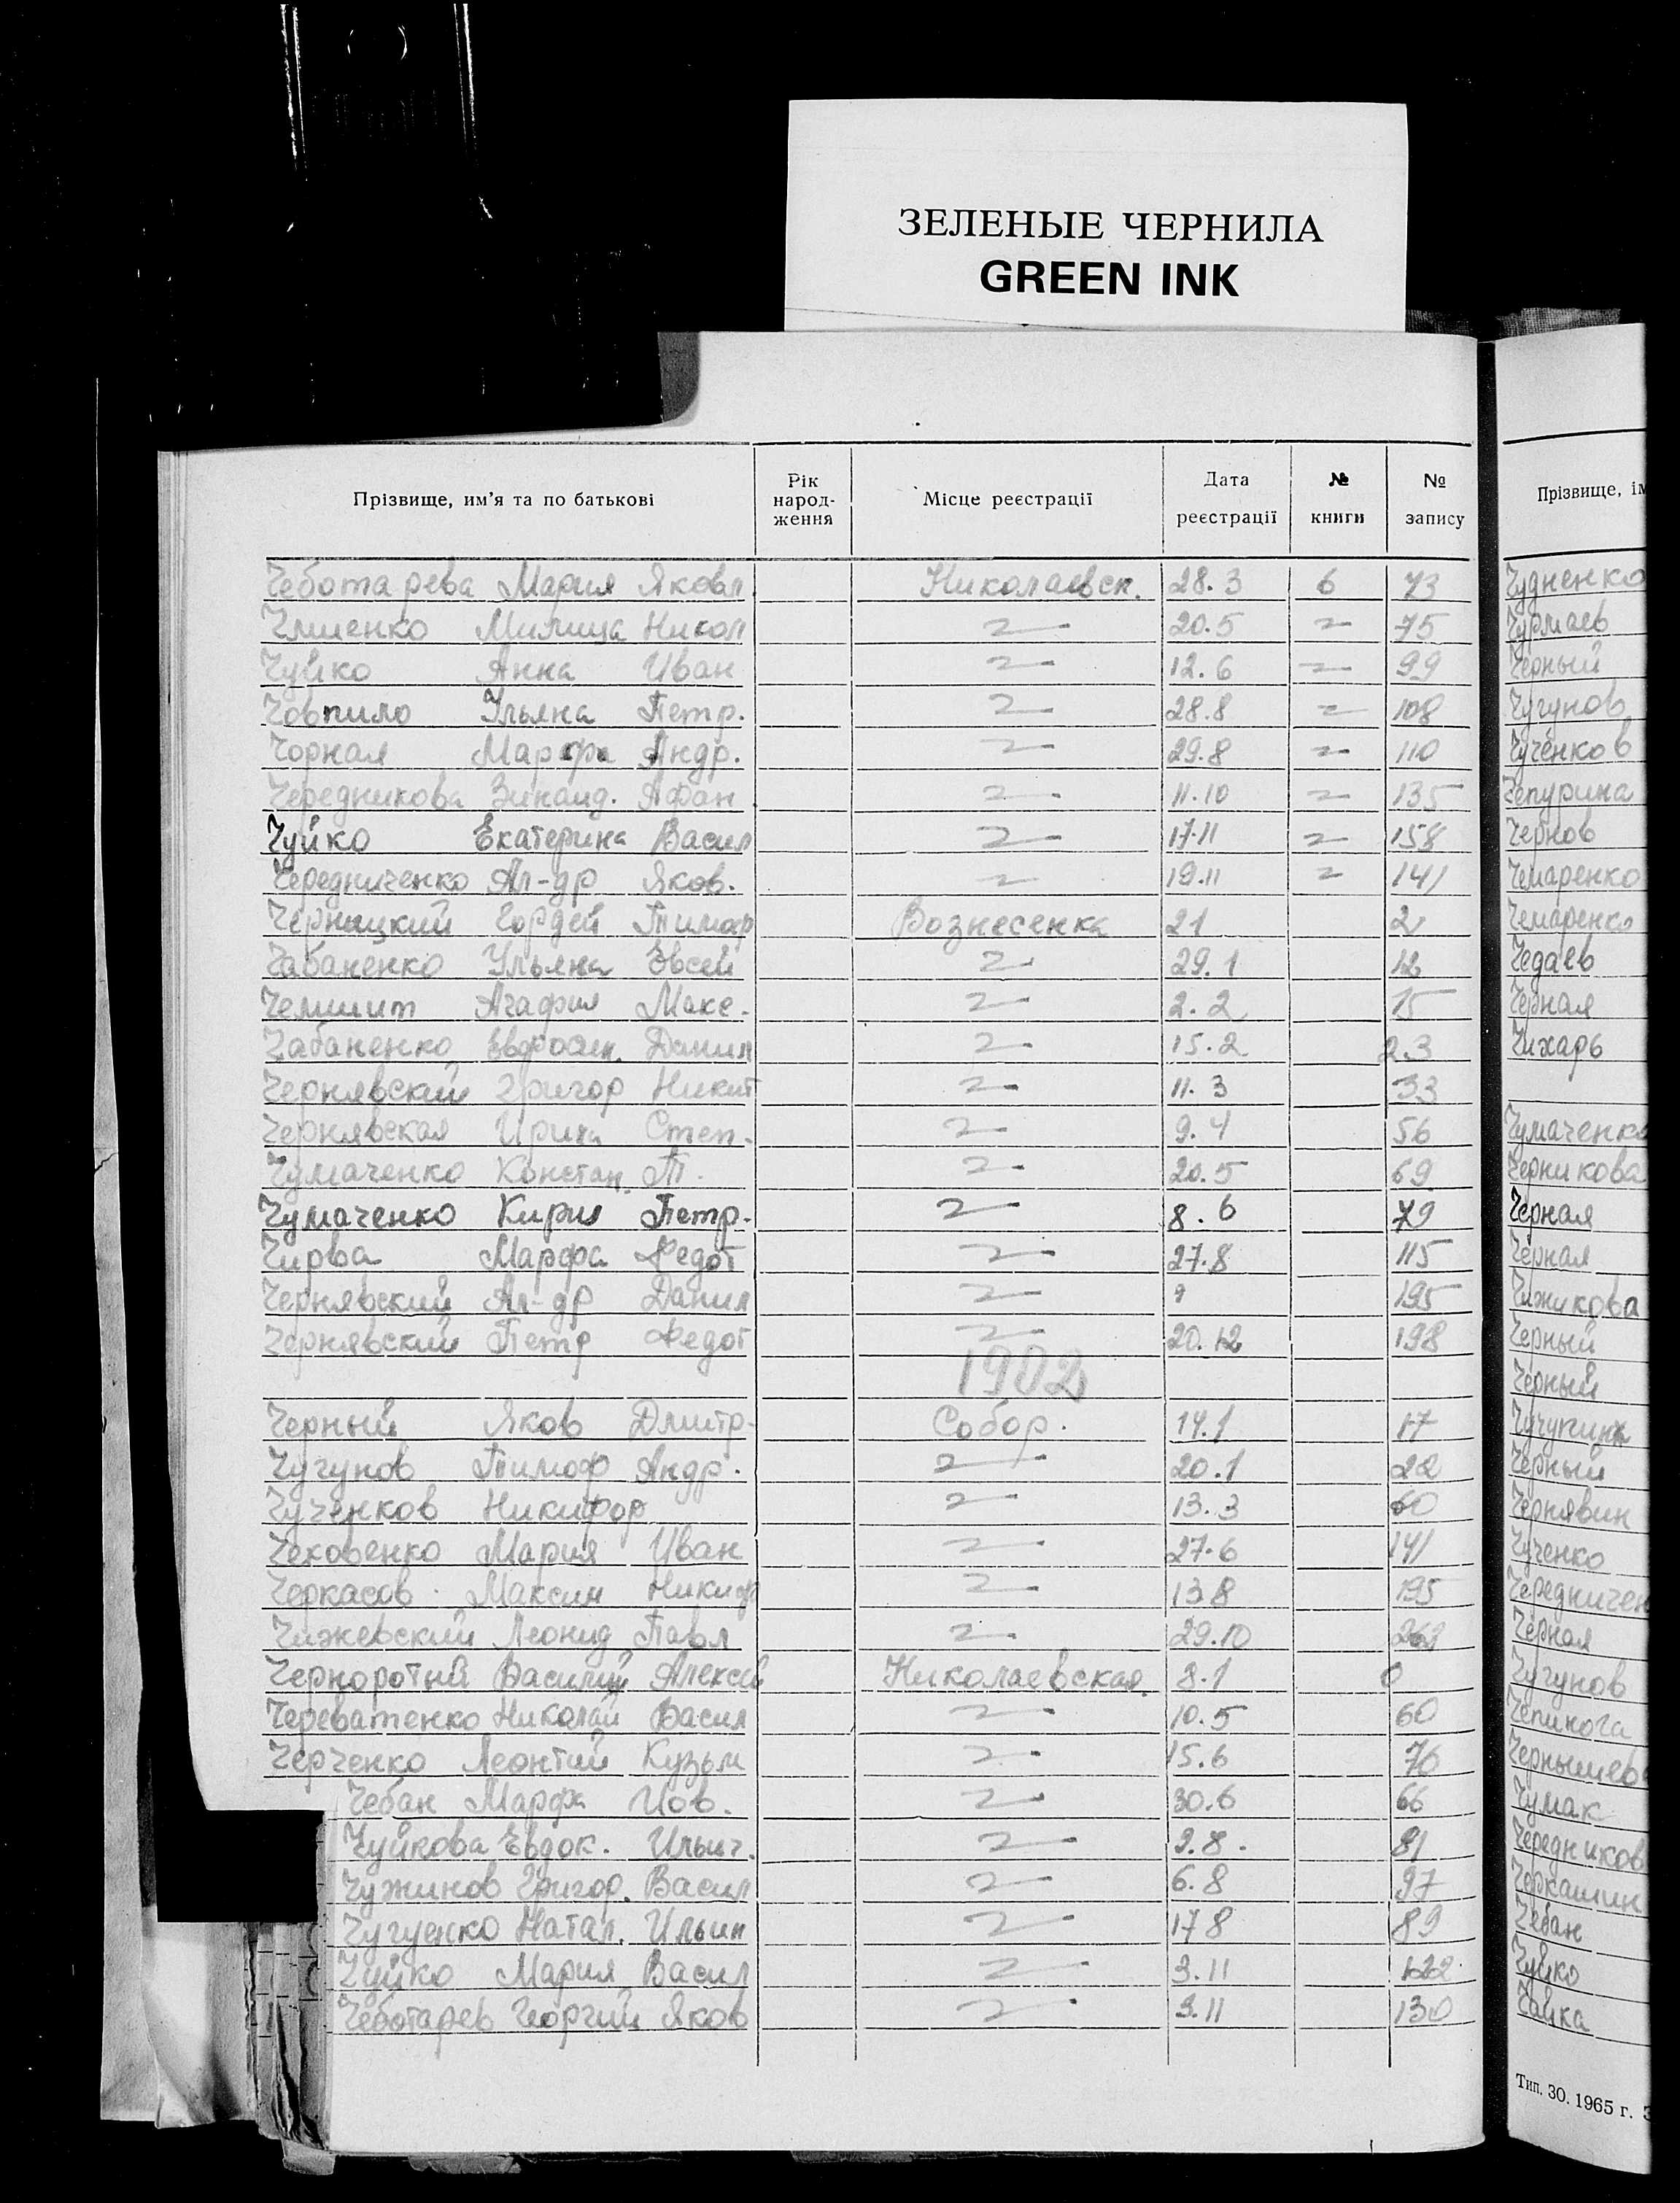 ЗЕЛЕНЫЕ ЧЕРНИЛА
GREEN INK
Прізвище, им'я та по батькові Рік народ-ження Місце реєстрації Дата реєстрації № книги № запису
Чеботарева Мария Яковл. Николаевск. 28.3 6 73
Милица Никол 20.5 75
Чуйко Анна Иван 12.6 99
Човпило Ульяна Петр. 28.8 108
Чорная Марфа Андр. 29.8 110
Чередникова Зинаид. Афан. 11.10 135
Чуйко Екатерина Васил 17.11 158
Чередниченко Ал-др Яков. 19.11 141
Черницкий Гордей Тимоф Вознесенка 21 2
Чабаненко Ульяна Евсей 29.1 12
Агафия Макс. 2.2 15
Чабаненко Евфосин. Данил 15.2 23
Чернявский Григор Никит 11.3 33
Чернявская Ирина Степ. 9.4 56
Чумаченко Констан. П. 20.5 69
Чумаченко Кирил Петр. 8.6 79
Чирва Марфа Федот 27.8 115
Чернявский Ал-др Данил 9 195
Чернявский Петр Федот 20.12 198
1902
Черный Яков Дмитр. Собор. 14.1 17
Чугунов Тимоф Андр. 20.1 22
Чученков Никифор 13.3 60
Чеховенко Мария Иван 27.6 141
Черкасов Максим Никиф 13.8 195
Чижевский Леонид Павл 29.10
Черноротый Василий Алексев Николаевская. 8.1 0
Череватенко Николай Васил 10.5 60
Черченко Леонтий Кузьм 15.6 76
Чебан Марфа Иов. 30.6 66
Чуйкова Евдок. Ильич. 2.8. 81
Чужинов Григор. Васил 6.8 97
Чугуенко Натал. Ильин 17.8 89
Чуйко Мария Васил 3.11 122
Чеботарев Георгий Яков 3.11 130
Прізвище, ім
Чудненко
Чурмаев
Черный
Чугунов
Чученков
Чепурина
Чернов
Чемаренко
Чемаренко
Чедаев
Черная
Чихарь
Чумаченко
Черникова
Черная
Черная
Чижикова
Черный
Черный
Черный
Чернявин
Чученко
Чередничен
Черная
Чугунов
Чепинога
Чернышев
Чумак
Чередников
Черкашин
Чебан
Чуйко
Чайка
Тип. 30. 1965 г. З